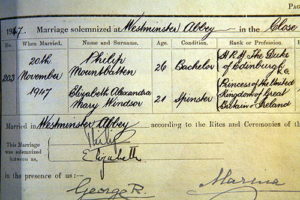 1947. Marriage solemnized at Westminster Abbey in the Close
When Married. Name and Surname. Age. Condition. Rank or Profession.
203 20th November 1947 Philip Mountbatten 26 Bachelor H.R.H. The Duke of Edinburgh K.G.
Elizabeth Alexandra Mary Windsor 21 Spinster Princess of the United Kingdom of Great Britain & Ireland
Married in Westminster Abbey according to the Rites and Ceremonies of the
This Marriage was solemnized between us, Philip
Elizabeth
in the presence of us: George R. Marina